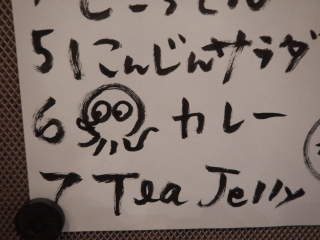 5 にんじんサラダ
6 カレー
7 Tea Jelly